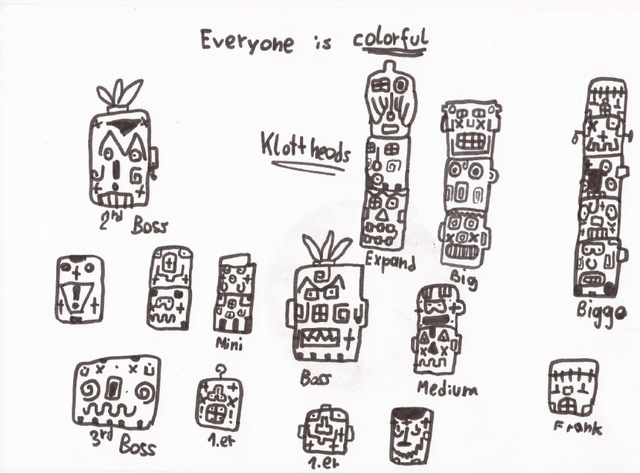 Everyone is colorful
Klottheads
2rd Boss
Expand
Big
Biggo
Mini
Boss
Medium
3rd Boss
1.er
1.er
Frank